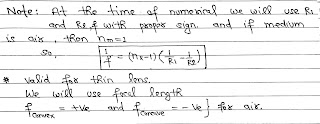 Note: At the time of numerical we will use R₁
and R₂, f with proper sign. and if medium
is air, then nm=1
so,
1/f = (n₂-1) (1/R₁ - 1/R₂)
* valid for thin lens.
We will use focal length
f convex = +ve and f concave = -ve } for air.